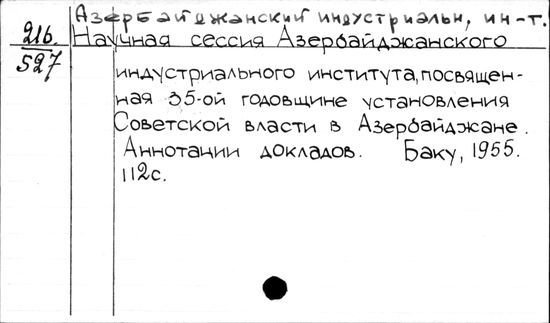 Азербайджанский индустриальн, ин-т.
216.
527
Научная сессия Азербайджанского
индустриального института, посвящен-
ная 35-ой годовщине установления
Советской власти в Азербайджане.
Аннотации докладов. Баку, 1955.
112с.